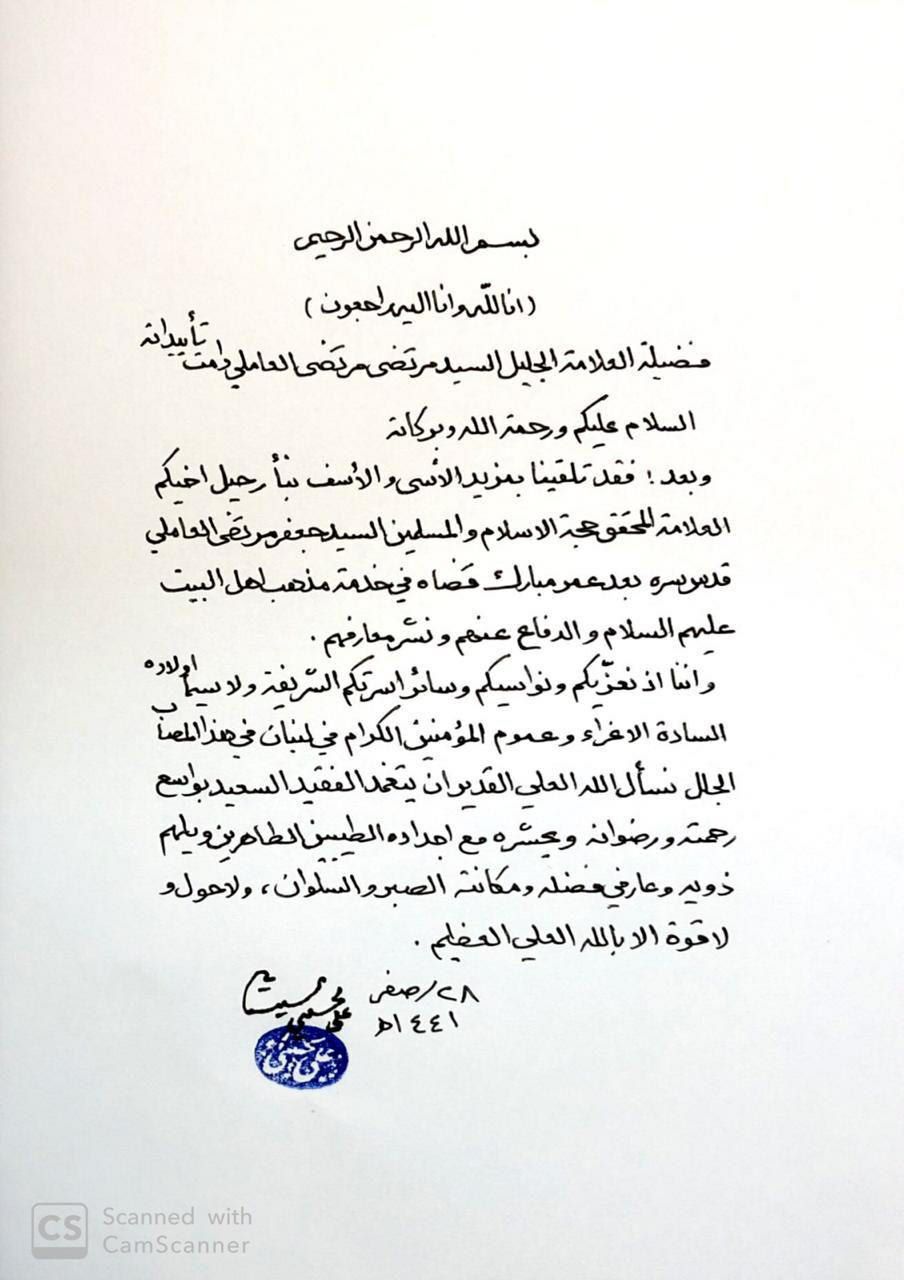 بسم الله الرحمن الرحيم
(انا لله وانا اليه راجعون)
فضيلة العلامة الجليل السيد مرتضى مرتضى العاملي دامت تأييداته
السلام عليكم ورحمة الله وبركاته
وبعد : فقد تلقينا بمزيد الأسى والأسف نبأ رحيل اخيكم
العلامة المحقق حجة الاسلام والمسلمين السيد جعفر مرتضى العاملي
قدس سره بعد عمر مبارك قضاه في خدمة مذهب اهل البيت
عليهم السلام والدفاع عنهم ونشر معارفهم .
واننا اذ نعزّيكم ونواسيكم وسائر اسرتكم الشريفة ولا سيما اولاده
السادة الاغراء وعموم المؤمنين الكرام في لبنان في هذا المصاب
الجلل نسأل الله العلي القدير ان يتغمد الفقيد السعيد بواسع
رحمته ورضوانه ويحشره مع اجداده الطيبين الطاهرين ويلهم
ذويه وعارفي فضله ومكانته الصبر والسلوان ، ولا حول و
لا قوة الا بالله العلي العظيم .
٢٨/صفر
١٤٤١هـ
علي الحسيني السيستاني
علي الحسيني
CS Scanned with
CamScanner